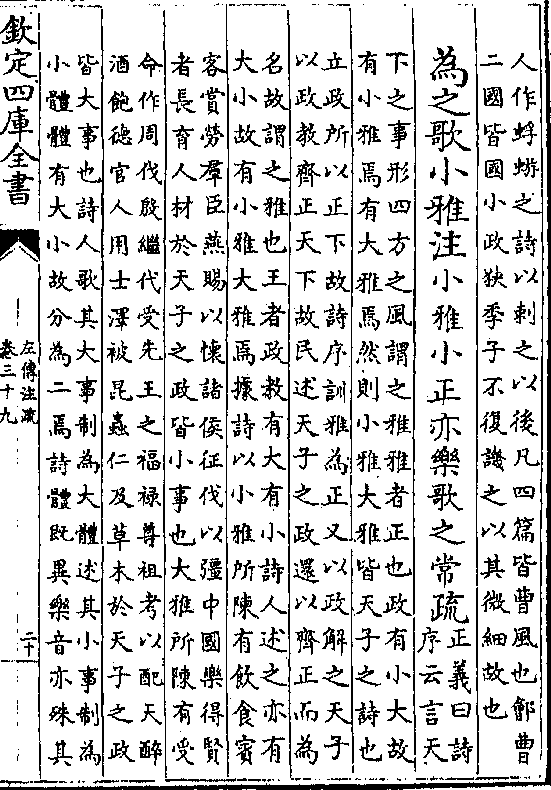 人作蜉蝣之詩以刺之以後凡四篇皆曹風也鄶曹
二國皆國小政狹季子不復譏之以其微細故也
為之歌小雅注小雅小正亦樂歌之常疏正義曰詩
序云言天
下之事形四方之風謂之雅雅者正也政有小大故
有小雅焉有大雅焉然則小雅大雅皆天子之詩也
立政所以正下故詩序訓雅為正又以政解之天子
以政教齊正天下故民述天子之政還以齊正而為
名故謂之雅也王者政教有大有小詩人述之亦有
大小故有小雅大雅焉據詩以小雅所陳有飲食賓
客賞勞羣臣燕賜以懷諸侯征伐以彊中國樂得賢
者長育人材於天子之政皆小事也大雅所陳有受
命作周伐殷繼代受先王之福禄尊祖考以配天醉
酒飽德官人用士澤被昆蟲仁及草木於天子之政
皆大事也詩人歌其大事制為大體述其小事制為
小體體有大小故分為二焉詩體既異樂音亦殊其
欽定四庫全書
左傳注疏
卷三十九
二十